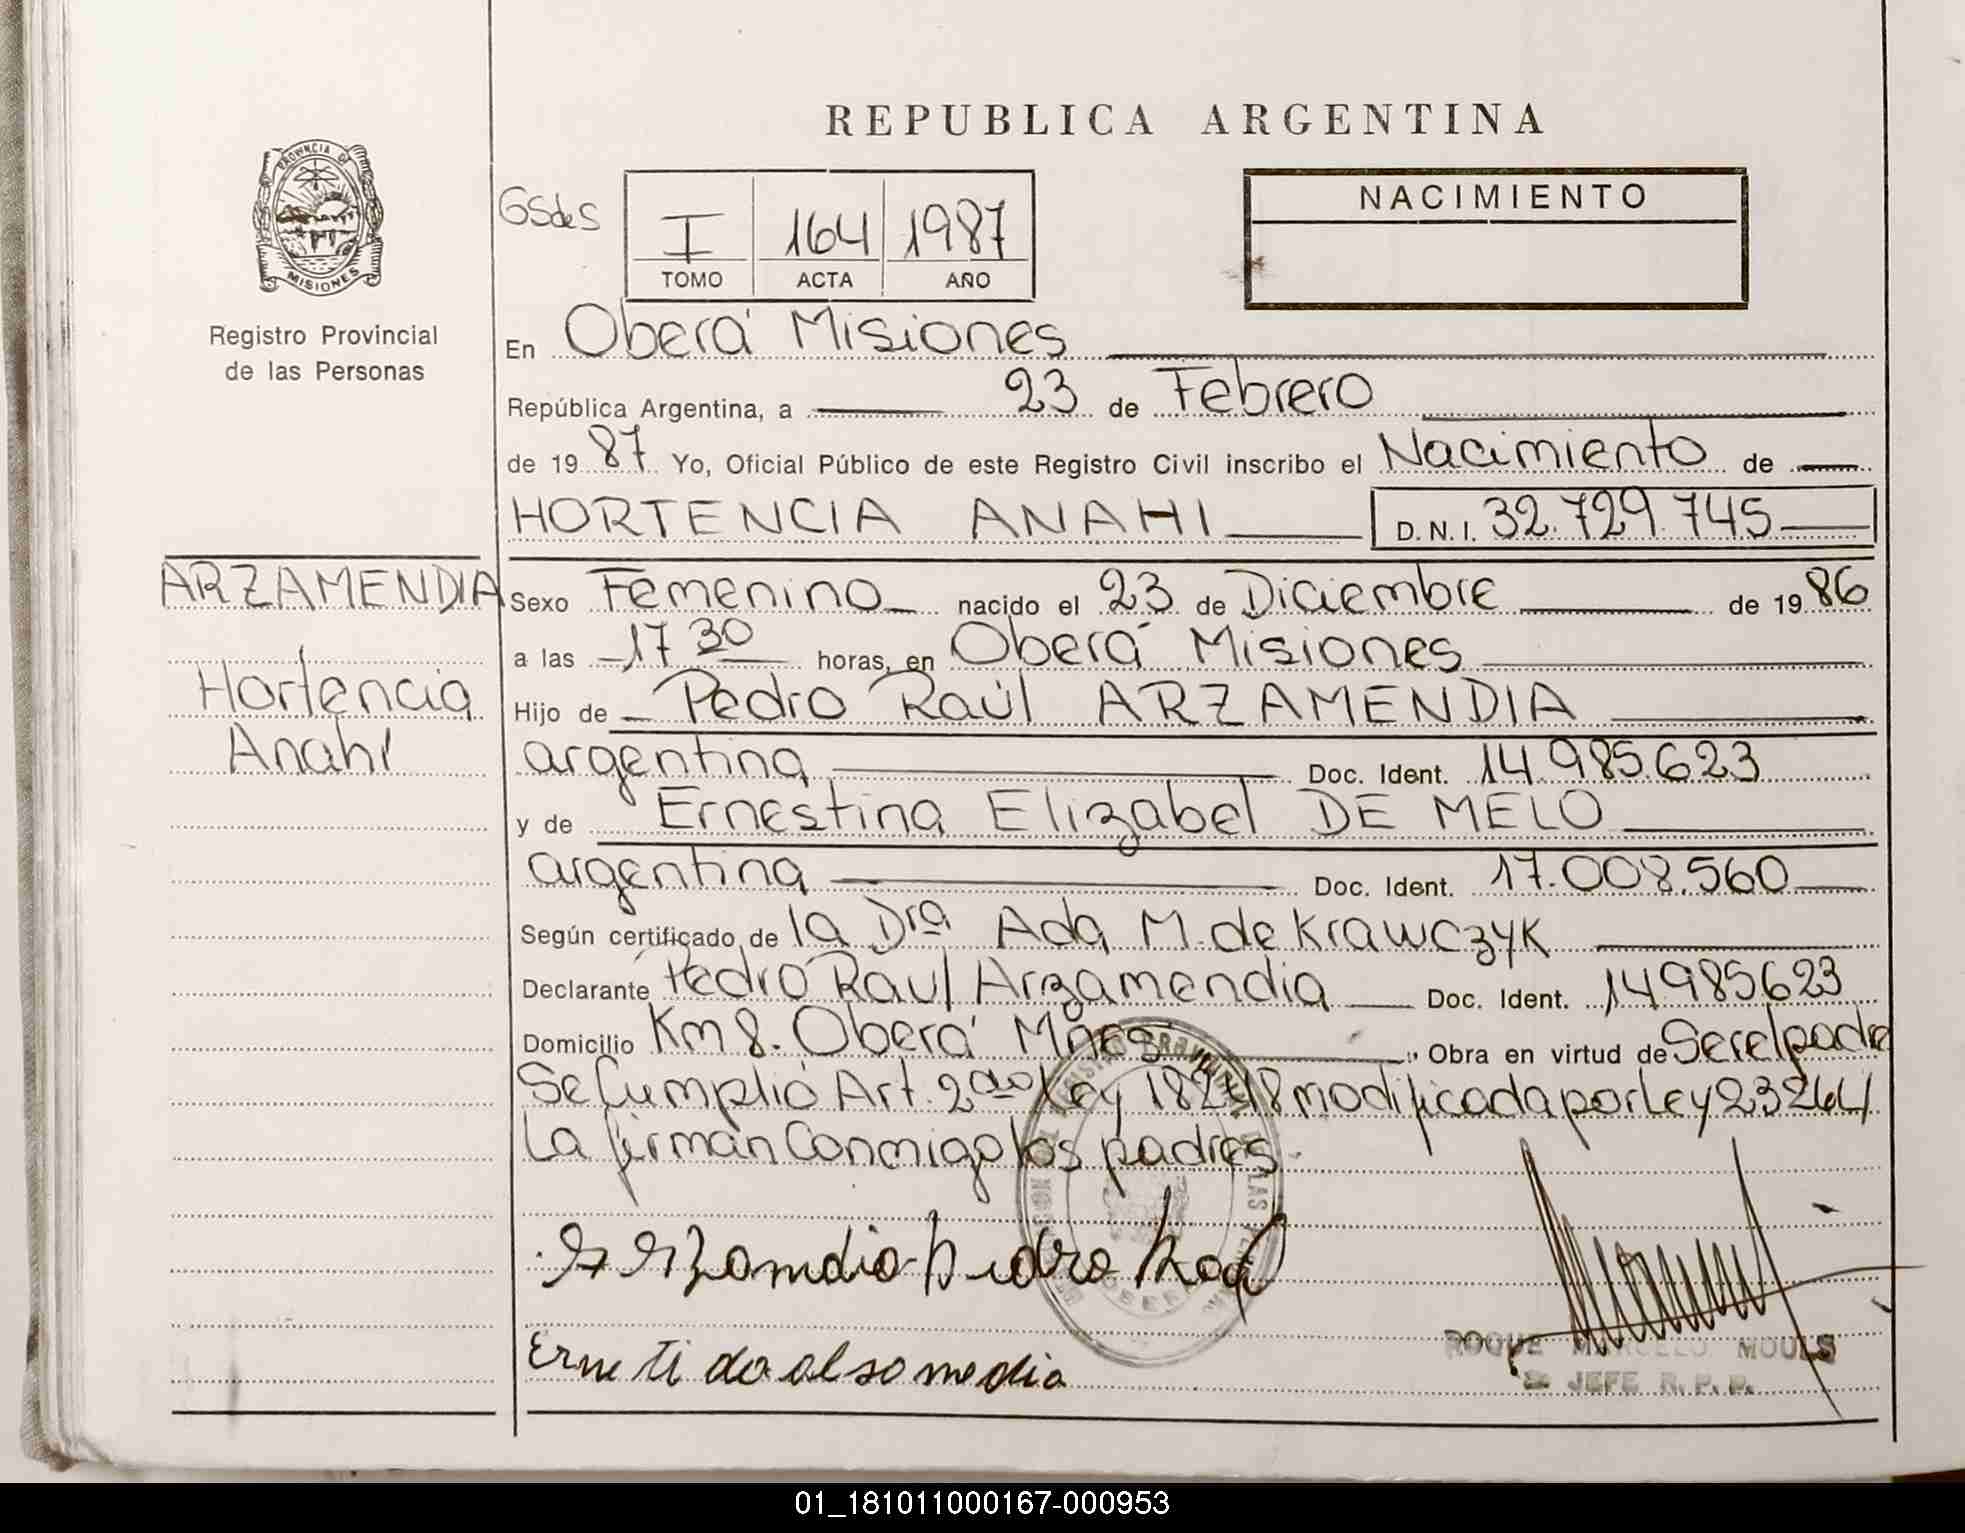 REPUBLICA ARGENTINA
PROVINCIA DE
MISIONES
Registro Provincial
de las Personas
GSdeS
I 164 1987
TOMO ACTA AÑO
NACIMIENTO
En Oberá Misiones
República Argentina, a 23 de Febrero
de 1987 Yo, Oficial Público de este Registro Civil inscribo el Nacimiento de
HORTENCIA ANAHI D.N.I. 32.729.745
ARZAMENDIA
Hortencia
Anahí
Sexo Femenino nacido el 23 de Diciembre de 1986
a las 17 30 horas, en Oberá Misiones
Hijo de Pedro Raúl ARZAMENDIA
argentina Doc. Ident. 14.985.623
y de Ernestina Elizabel DE MELO
argentina Doc. Ident. 17.008.560
Según certificado de la Dra Ada M. de Krawczyk
Declarante Pedro Raul Arzamendia Doc. Ident. 14985623
Domicilio Km 8. Oberá Mnes. Obra en virtud de Ser el padre
Se Cumplió Art. 2do Ley 18248 modificada por Ley 23264
La firman Conmigo los padres.
Pedro
ROQUE MARCELO
JEFE R.P.P.
01_181011000167-000953